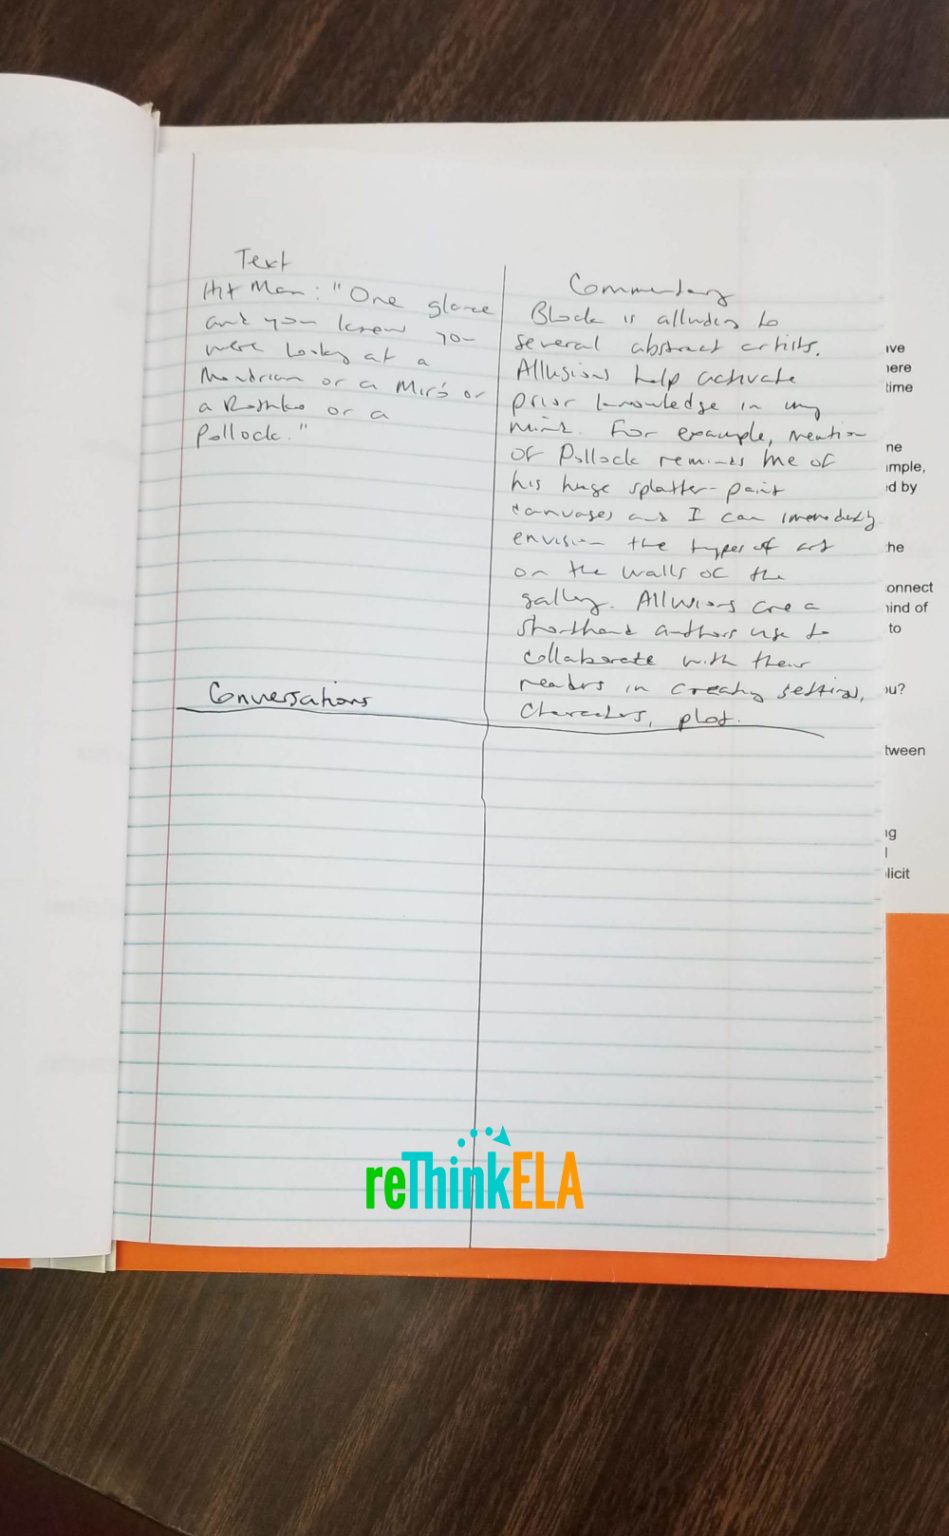 Text
Hit Man: "One glance
and you knew you
were looking at a
Mondrian or a Miró or
a Rothko or a
Pollock."
Conversations
Commentary
Block is alluding to
several abstract artists.
Allusions help activate
prior knowledge in my
mind. For example, mention
of Pollock reminds me of
his huge splatter-paint
canvases and I can immediately
envision the types of art
on the walls of the
gallery. Allusions are a
shorthand authors use to
collaborate with their
readers in creating settings,
characters, plot.
ive
here
time
ne
ample,
d by
he
onnect
ind of
to
ou?
tween
ng
l
plicit
reThinkELA